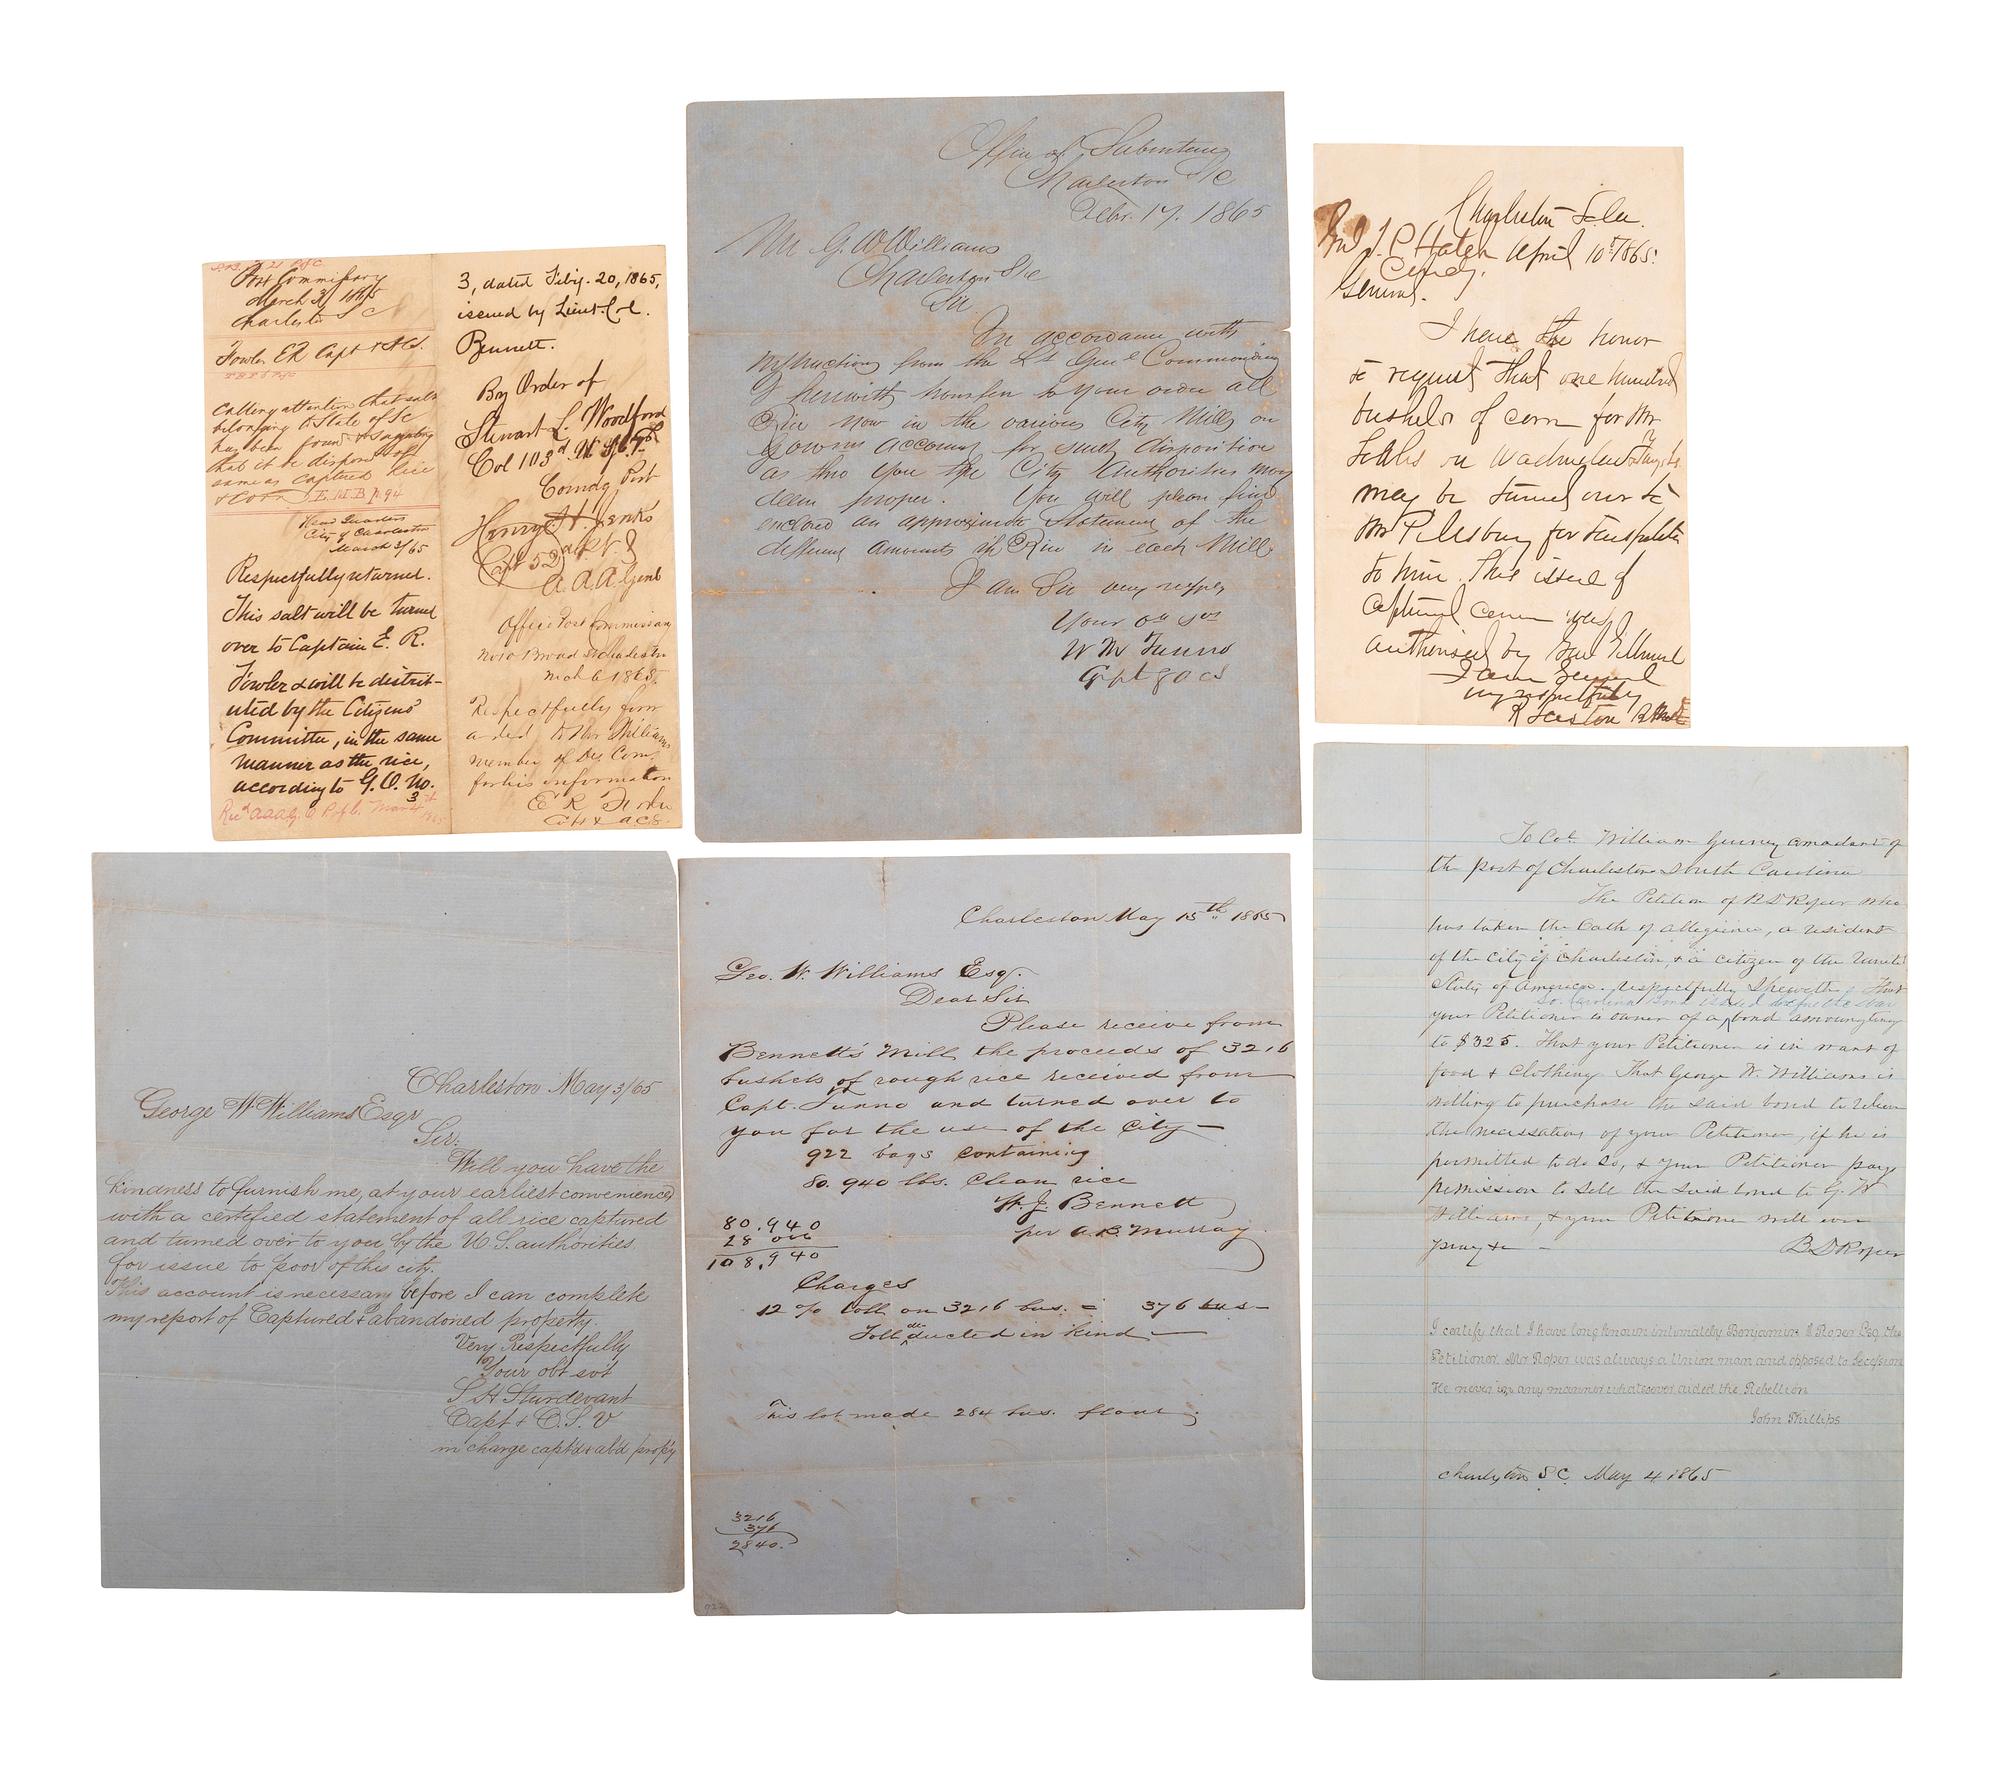 Post Commissary
March 3, 1865
Charleston S C
Fowler E R Capt & A C S.
Calling attention that salt
belonging to State of S C
has been found & suggesting
that it be disposed of
same as captured rice
& corn E. M. B. P. 94
Head Quarters
City of Charleston
March 3/65
Respectfully returned.
This salt will be turned
over to Captain E. R.
Fowler & will be distrib-
uted by the Citizens'
Committee, in the same
manner as the rice,
according to G. O. No.
3
3, dated Feby. 20, 1865,
issued by Lieut. Col.
Bennett.
By Order of
Stewart L. Woodford
Col 103d U.S.C.T.
Comdg Post
Henry H. Jenks
Capt 52d P.V. &
A. A. A. Genl
Office Post Commissary
No 10 Broad St Charleston
Mch 6 1865.
Respectfully forw
arded to Mr Williams
member of Dis Com
for his information
E R Fowler
Capt & a.c.s.
Office of Subsistence
Charleston S/C
Febr. 17. 1865
Mr G. W Williams
Charleston S/c
Sir
In accordance with
instructions from the Lt Genl Commanding
I herewith transfer to your order all
Rice now in the various City Mills on
Gowns account for such disposition
as tho you the City Authorities may
deem proper. You will please find
enclosed an approximate Statement of the
different amounts of Rice in each Mill
I am Sir very respy
Your ob svt
W M Tunno
Capt & a c s
Charleston So Ca.
April 10th 1865.
Genl J. P Hatch
Comdg.
General.
I have the honor
to request that one hundred
bushels of corn for Mr
Seabs on Wadmalaw
may be turned over to
Mr Pilsbury for
to him. This issue of
captured corn was
authorised by Genl Gillmore
I am General
very respectfully
R
Charleston May 3/65
George W Williams Esqr
Sir:
Will you have the
kindness to furnish me, at your earliest convenience,
with a certified statement of all rice captured
and turned over to you by the U S. authorities.
for issue to poor of this city.
This account is necessary before I can complete
my report of Captured & abandoned property.
Very Respectfully
Your obt svt
S H Sturdevant
Capt & C. S. V
in charge captd & abd prop'y
Charleston May 15th 1865
Geo. W. Williams Esq.
Dear Sir
Please receive from
Bennett's Mill the proceeds of 3216
bushels of rough rice received from
Capt. Tunno and turned over to
you for the use of the City —
922 bags containing
80.940 lbs. Clean rice
W. J. Bennett
per A. B. Murray
80.940
28 000
108,940
Charges
12 % toll on 3216 bus. = 376 bus —
Toll deducted in kind —
This lot made 284 bus. flour.
3216
376
2840.
922
To Col. William Gurney Comadant of
the post of Charleston South Carolina
The Petition of B D Roper who
has taken the Oath of allegiance, a resident
of the city of Charleston, & a citizen of the United
States of America. respectfully Sheweth, That
So. Carolina Bond issued before the war
your Petitioner is owner of a bond amounting
to $325. That your Petitioner is in want of
food & Clothing That George W. Williams is
willing to purchase the said bond to relieve
the necessaties of your Petitioner, if he is
permitted to do so, & your Petitioner prays
permission to Sell the said bond to G. W
Williams, & your Petitioner will ever
pray &c —
B D Roper
I certify that I have long known intimately Benjamin D Roper Esq the
Petitioner. Mr Roper was always a Union man and opposed to Secession
He never in any manner whatsoever aided the Rebellion
John Phillips
Charleston S.C. May 4 1865